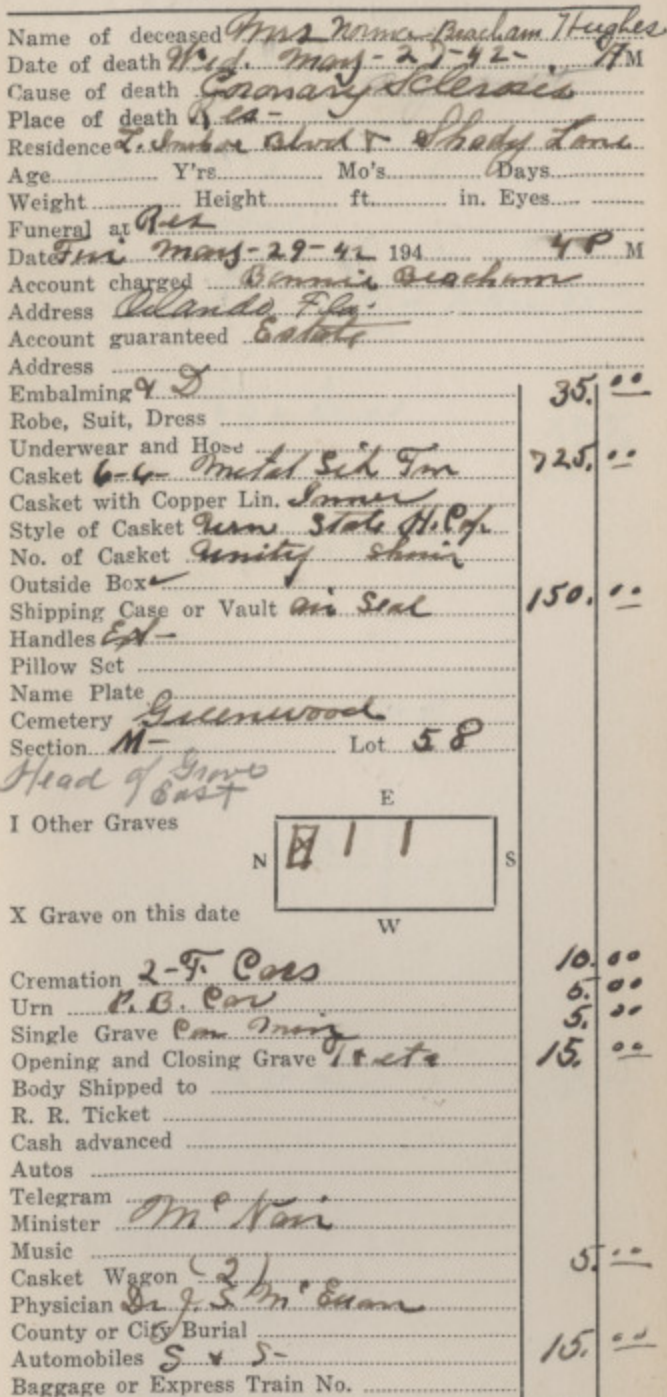 Name of deceased Mrs Norma Beacham Hughes
Date of death Wed. May-27-42- M
Cause of death Coronary Sclerosis
Place of death Res-
Residence Blvd & Shady Lane
Age Y'rs Mo's Days
Weight Height ft. in. Eyes
Funeral at Res
Date Fri May-29-42 194 4 P M
Account charged Beacham
Address Orlando Fla.
Account guaranteed Estate
Address
Embalming & D 35.00
Robe, Suit, Dress
Underwear and Hose
Casket 6-6- Metal 725.00
Casket with Copper Lin. Inner
Style of Casket Urn State
No. of Casket Unity
Outside Box ✓
Shipping Case or Vault air Seal 150.00
Handles Ex-
Pillow Set
Name Plate
Cemetery Greenwood
Section M- Lot 58
Head of Grave
East
E
I Other Graves
N X I I S
X Grave on this date
W
Cremation 2-F. Cars 10.00
Urn P.B. Car 5.00
Single Grave 5.00
Opening and Closing Grave 15.00
Body Shipped to
R. R. Ticket
Cash advanced
Autos
Telegram
Minister McNair
Music
Casket Wagon (2) 5.00
Physician Dr J. S. McEwan
County or City Burial
Automobiles S & S- 15.00
Baggage or Express Train No.